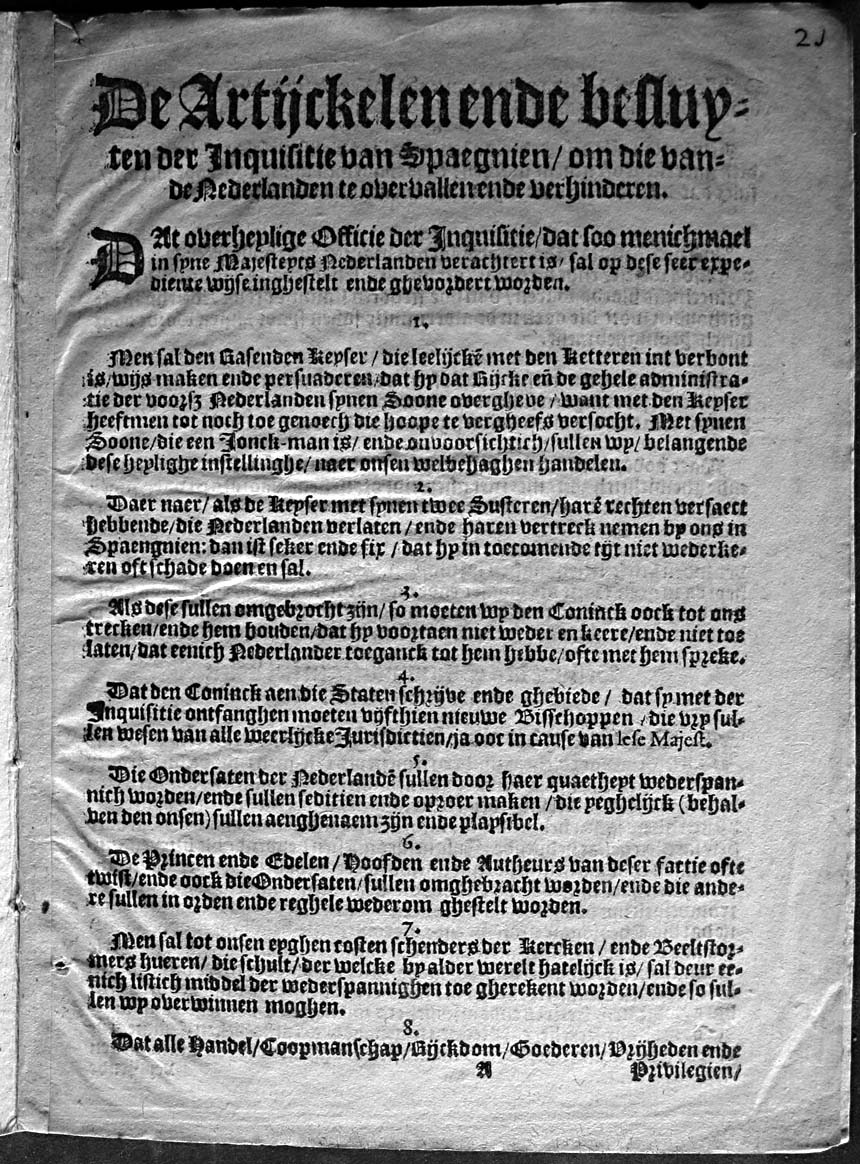 21
De Artijckelen ende besluy-
ten der Inquisitie van Spaegnien/ om die van-
de Nederlanden te overvallen ende verhinderen.
DAt overheylige Officie der Inquisitie/dat soo menichmael
in syne Majesteyts Nederlanden verachtert is/ sal op dese seer expe-
diente wijse inghestelt ende ghevordert worden.
1.
Men sal den Rasenden Keyser / die leelijckē met den Ketteren int verbont
is/wijs maken ende persuaderen/dat hy dat Rijcke eñ de gehele administra-
tie der voorsz Nederlanden synen Soone overgheve / want met den Keyser
heeftmen tot noch toe genoech die hoope te vergheefs versocht. Met synen
Soone/die een Jonck-man is/ ende onvoorsichtich/sullen wy/ belangende
dese heylighe instellinghe/naer onsen welbehaghen handelen.
2.
Daer naer/ als de Keyser met synen twee Susteren/harē rechten versaect
hebbende/die Nederlanden verlaten /ende haren vertreck nemen by ons in
Spaengnien: dan ist seker ende fix / dat hy in toecomende tijt niet wederke-
ren oft schade doen en sal.
3.
Als dese sullen omgebrocht zijn/ so moeten wy den Coninck oock tot ons
trecken/ende hem houden/dat hy voortaen niet weder en keere/ende niet toe
laten/dat eenich Nederlander toeganck tot hem hebbe/ofte met hem spreke.
4.
Dat den Coninck aen die Staten schrijve ende ghebiede / dat sy met der
Inquisitie ontfanghen moeten vijfthien nieuwe Bisschoppen /die vry sul-
len wesen van alle weerlijcke Jurisdictien/ja oor in cause van lese Majest.
5.
Die Ondersaten der Nederlandē sullen door haer quaetheyt wederspan-
nich worden/ende sullen seditien ende oproer maken /die yeghelijck (behal-
ven den onsen) sullen aenghenaem zijn ende playsibel.
6.
De Princen ende Edelen /Hoofden ende Autheurs van deser factie ofte
twist/ende oock die Ondersaten/sullen omghebracht worden/ende die ande-
re sullen in orden ende reghele wederom ghestelt worden.
7.
Men sal tot onsen eyghen costen schenders der Kercken / ende Beeltstor-
mers hueren/ die schult/der welcke by alder werelt hatelijck is/ sal deur ee-
nich listich middel der wederspannighen toe gherekent worden/ende so sul-
len wy overwinnen moghen.
8.
Dat alle Handel/Coopmanschap/Rijckdom/Goederen/Vrijheden ende
A Privilegien/